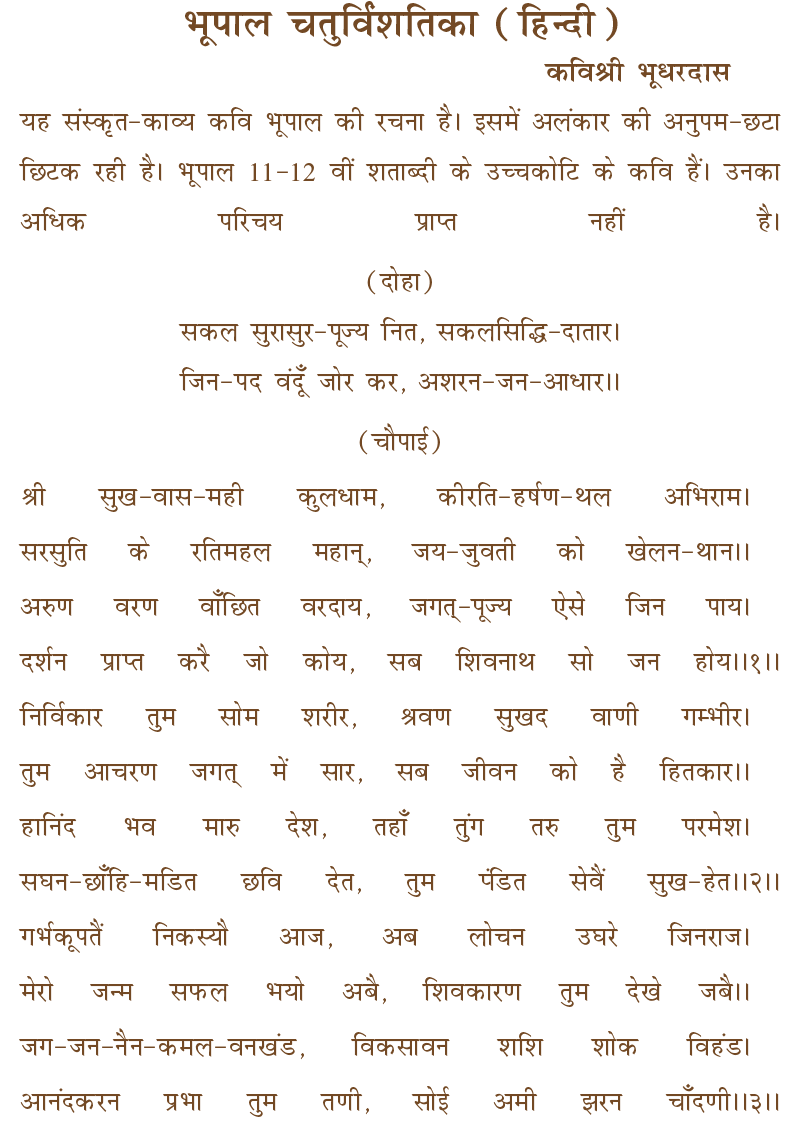 भूपाल चतुर्विंशतिका ( हिन्दी )
कविश्री भूधरदास
यह संस्कृत-काव्य कवि भूपाल की रचना है। इसमें अलंकार की अनुपम-छटा
छिटक रही है। भूपाल 11-12 वीं शताब्दी के उच्चकोटि के कवि हैं। उनका
अधिक परिचय प्राप्त नहीं है।
(दोहा)
सकल सुरासुर-पूज्य नित, सकलसिद्धि-दातार।
जिन-पद वंदूँ जोर कर, अशरन-जन-आधार।।
(चौपाई)
श्री सुख-वास-मही कुलधाम, कीरति-हर्षण-थल अभिराम।
सरसुति के रतिमहल महान्, जय-जुवती को खेलन-थान।।
अरुण वरण वाँछित वरदाय, जगत्-पूज्य ऐसे जिन पाय।
दर्शन प्राप्त करै जो कोय, सब शिवनाथ सो जन होय।।१।।
निर्विकार तुम सोम शरीर, श्रवण सुखद वाणी गम्भीर।
तुम आचरण जगत् में सार, सब जीवन को है हितकार।।
हानिंद भव मारु देश, तहाँ तुंग तरु तुम परमेश।
सघन-छाँहि-मडित छवि देत, तुम पंडित सेवैं सुख-हेत।।२।।
गर्भकूपतैं निकस्यौ आज, अब लोचन उघरे जिनराज।
मेरो जन्म सफल भयो अबै, शिवकारण तुम देखे जबै।।
जग-जन-नैन-कमल-वनखंड, विकसावन शशि शोक विहंड।
आनंदकरन प्रभा तुम तणी, सोई अमी झरन चाँदणी।।३।।